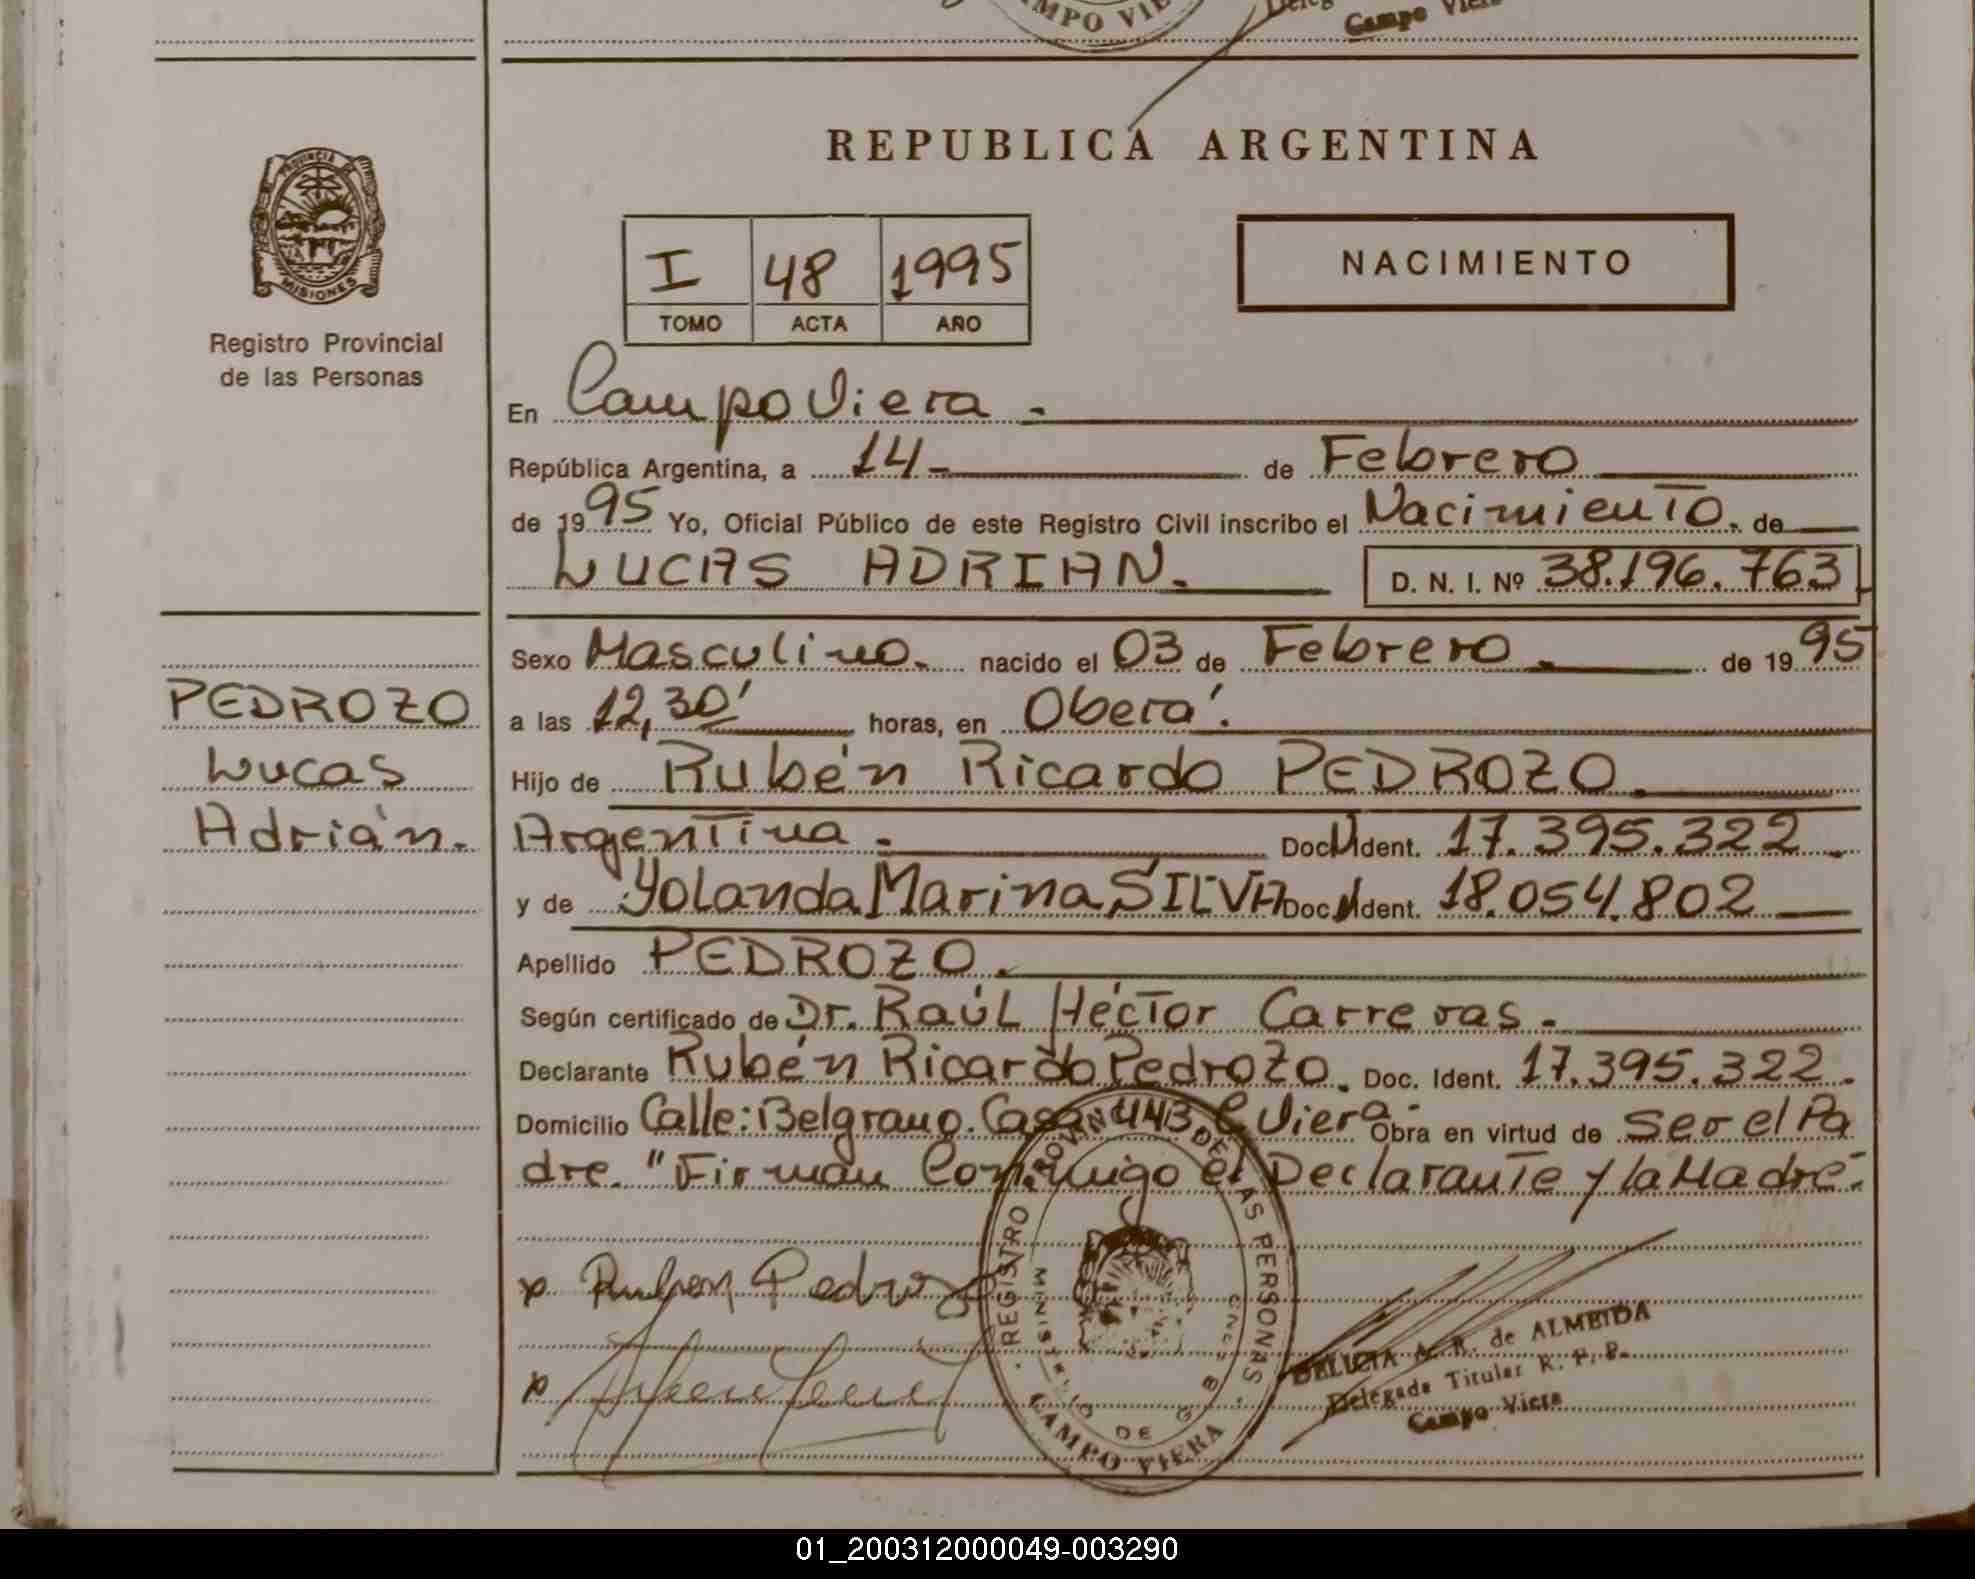 CAMPO VIE
Deleg
Campo Viera
REPUBLICA ARGENTINA
PROVINCIA DE
MISIONES
Registro Provincial
de las Personas
I 48 1995
TOMO ACTA AÑO
NACIMIENTO
En Campo Viera.
República Argentina, a 14 de Febrero
de 1995 Yo, Oficial Público de este Registro Civil inscribo el Nacimiento. de
LUCAS ADRIAN. D. N. I. Nº 38.196.763
Sexo Masculino. nacido el 03 de Febrero de 1995
a las 12,30' horas, en Oberá.
Hijo de Rubén Ricardo PEDROZO.
Argentina. Doc. Ident. 17.395.322
y de Yolanda Marina SILVA Doc. Ident. 18.054.802
Apellido PEDROZO.
Según certificado de Dr. Raúl Héctor Carreras.
Declarante Rubén Ricardo Pedrozo. Doc. Ident. 17.395.322.
Domicilio Calle: Belgrano. Casa 443. C. Viera. Obra en virtud de ser el Pa
dre. "Firman Conmigo el Declarante y la Madre.
PEDROZO
Lucas
Adrián.
x Ruben Pedrozo
REGISTRO PROVINCIAL DE LAS PERSONAS
MINISTERIO DE G
CAMPO VIERA
DELICIA A. R. de ALMEIDA
Delegada Titular R. P. P.
Campo Viera
01_200312000049-003290